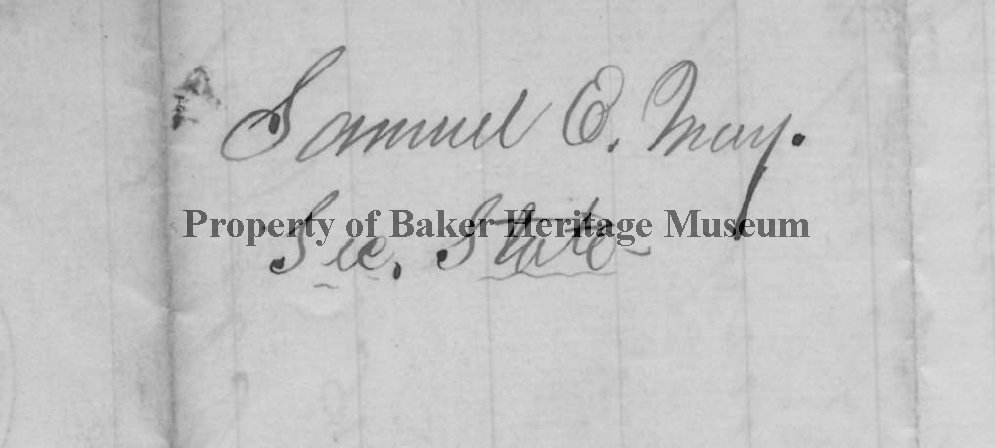 Samuel E. May.
Property of Baker Heritage Museum
Sec. State